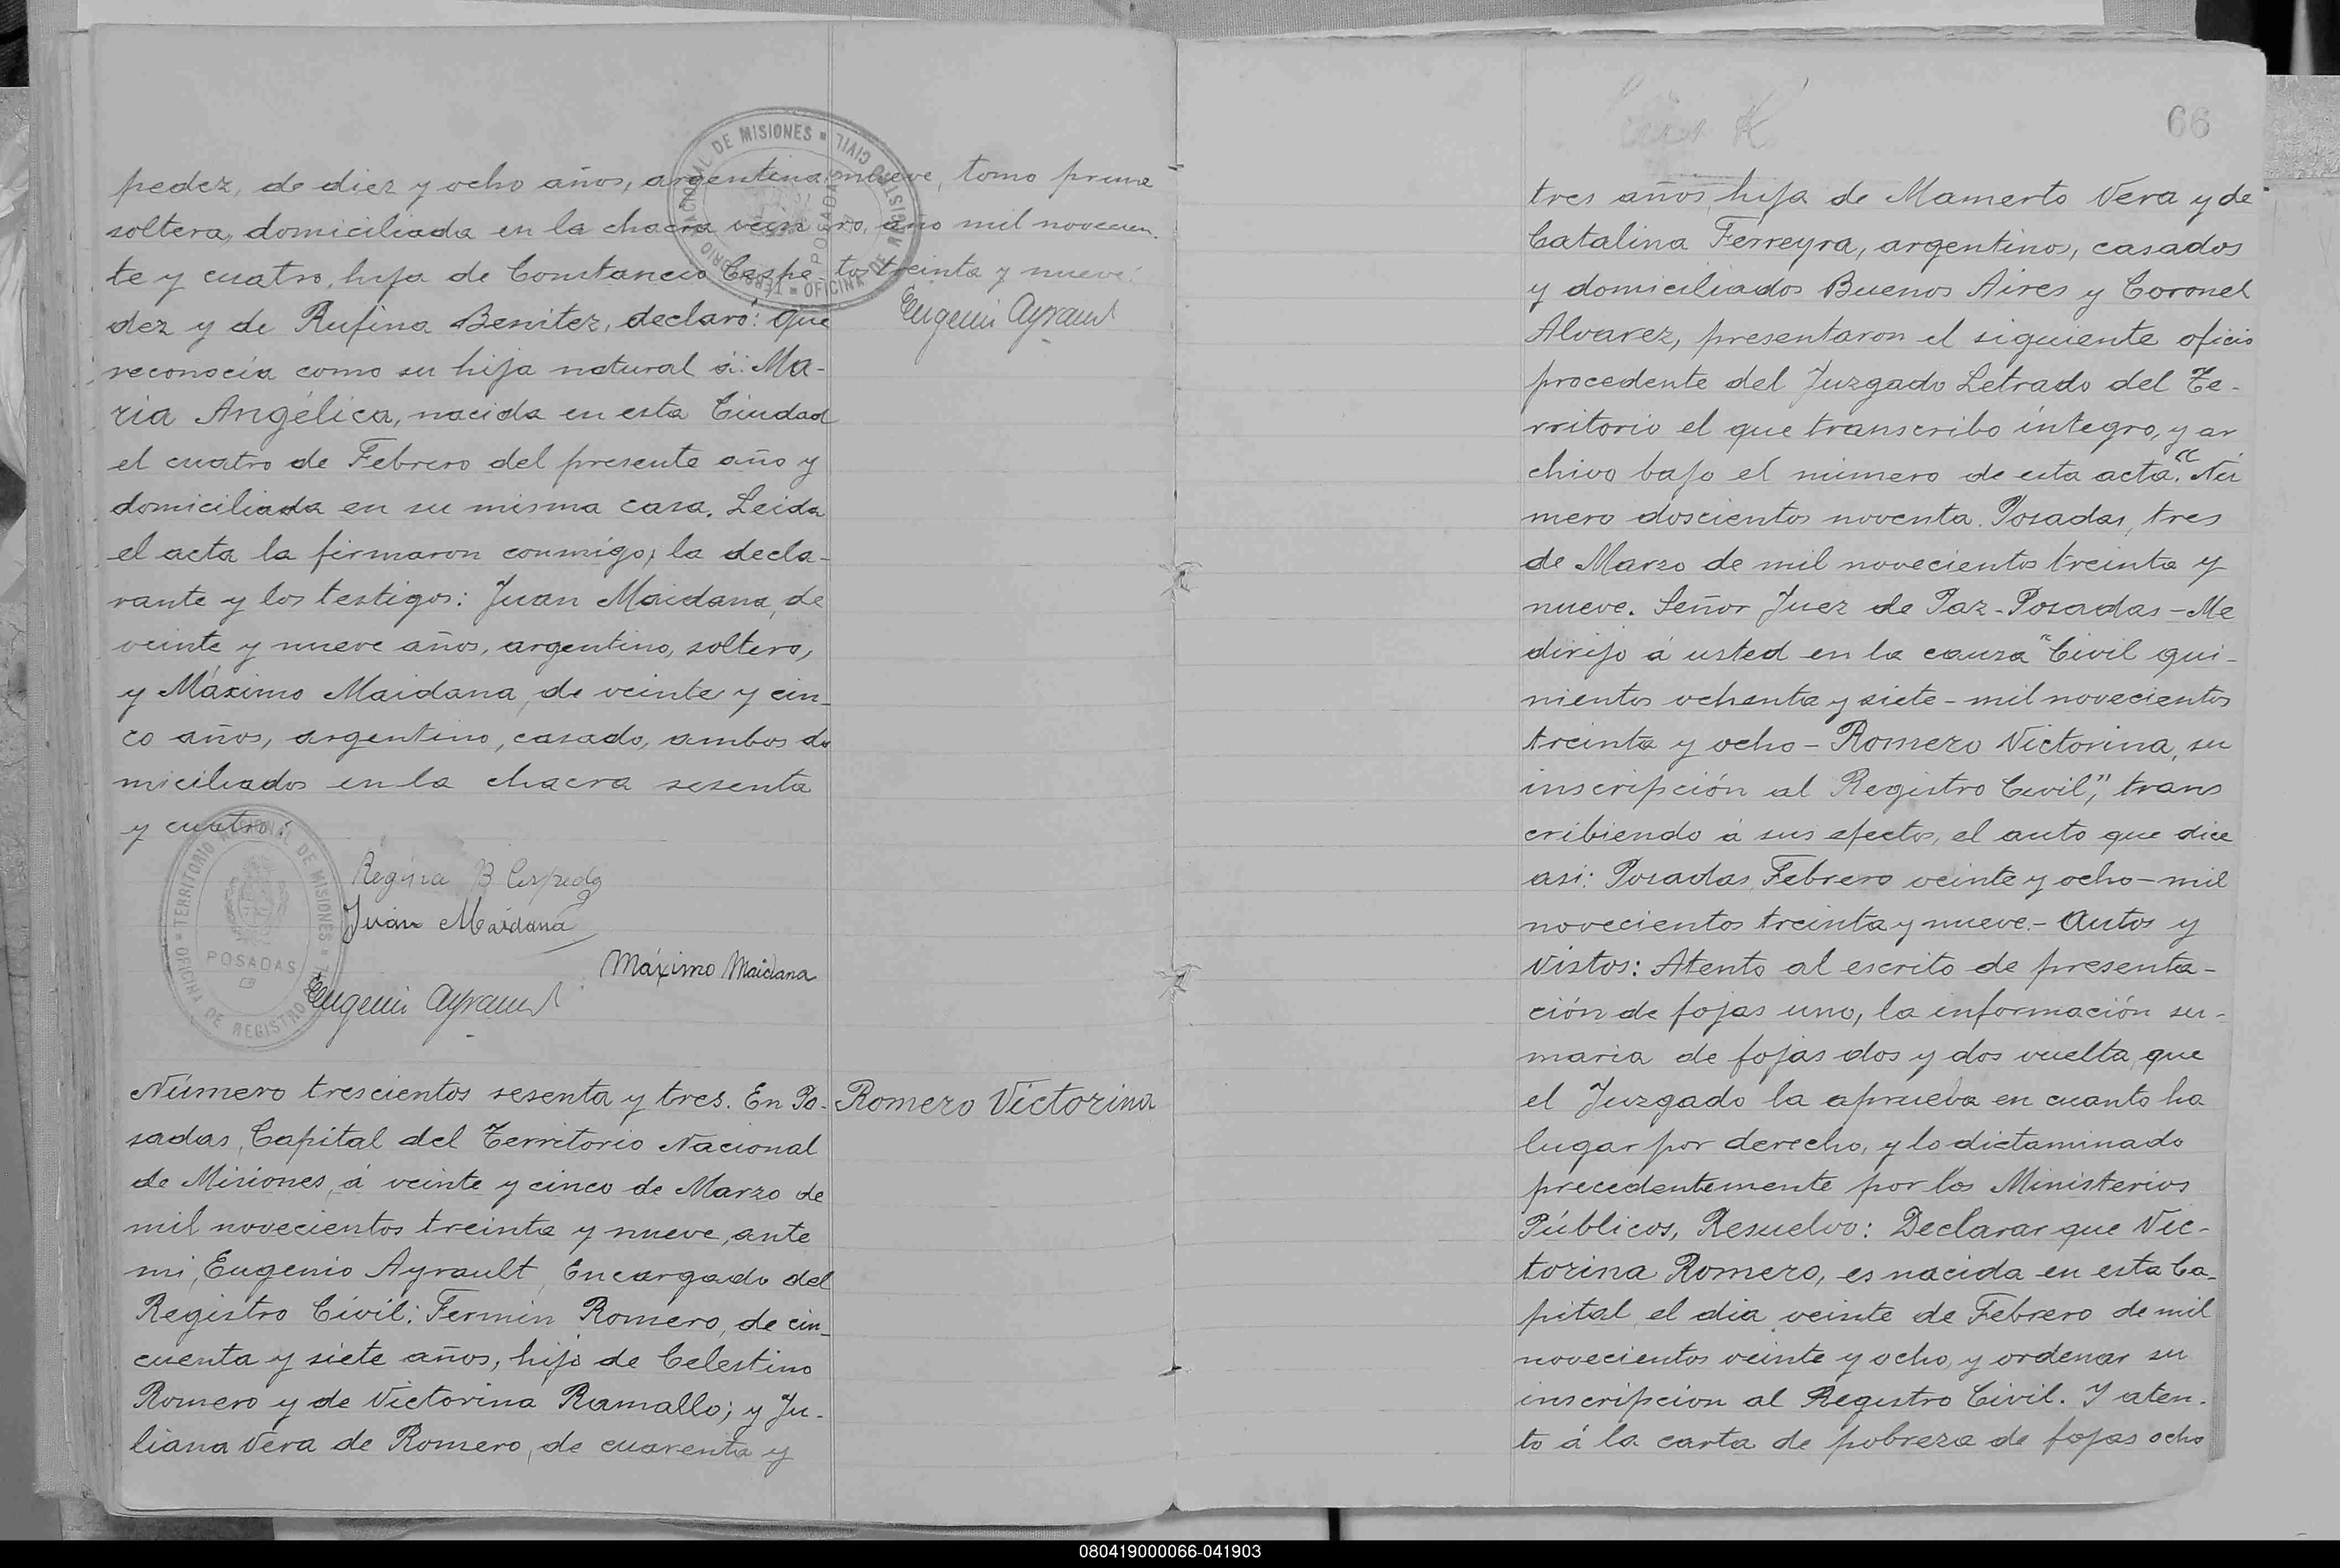 pedez, de diez y ocho años, argentina
soltera, domiciliada en la chacra vein
te y cuatro, hija de Constancio Cespe
dez y de Rufina Benitez, declaró: que
reconocía como su hija natural á: Ma-
ria Angélica, nacida en esta Ciudad
el cuatro de Febrero del presente año y
domiciliada en su misma casa. Leida
el acta la firmaron conmigo, la decla-
rante y los testigos: Juan Maidana, de
veinte y nueve años, argentino, soltero,
y Máximo Maidana, de veinte y cin-
co años, argentino, casado, ambos do
miciliados en la chacra sesenta
y cuatro:
Regina B Cespedez
Juan Maidana
Máximo Maidana
Eugenio Ayrault
OFICINA DE REGISTRO CIVIL = TERRITORIO NACIONAL DE MISIONES =
POSADAS
nueve, tomo prime
ro, año mil novecien
tos treinta y nueve:
Eugenio Ayrault
TERRITORIO NACIONAL DE MISIONES = OFICINA DE REGISTRO CIVIL
POSADAS
Número trescientos sesenta y tres. En Po-
sadas, Capital del Territorio Nacional
de Misiones, á veinte y cinco de Marzo de
mil novecientos treinta y nueve, ante
mi, Eugenio Ayrault, Encargado del
Registro Civil: Fermin Romero, de cin-
cuenta y siete años, hijo de Celestino
Romero y de Victorina Ramallo; y Ju-
liana Vera de Romero, de cuarenta y
Romero Victorina
66
tres años, hija de Mamerto Vera y de
Catalina Ferreyra, argentinos, casados
y domiciliados Buenos Aires y Coronel
Alvarez, presentaron el siguiente oficio
procedente del Juzgado Letrado del Te-
rritorio el que transcribo íntegro, y ar
chivo bajo el número de esta acta. "Nú
mero doscientos noventa. Posadas, tres
de Marzo de mil novecientos treinta y
nueve. Señor Juez de Paz - Posadas - Me
dirijo á usted en la causa "Civil qui-
nientos ochenta y siete - mil novecientos
treinta y ocho - Romero Victorina, su
inscripción al Registro Civil", trans
cribiendo á sus efectos, el auto que dice
asi: Posadas, Febrero veinte y ocho - mil
novecientos treinta y nueve. - Autos y
Vistos: Atento al escrito de presenta-
ción de fojas uno, la información su-
maria de fojas dos y dos vuelta, que
el Juzgado la aprueba en cuanto ha
lugar por derecho, y lo dictaminado
precedentemente por los Ministerios
Públicos, Resuelvo: Declarar que Vic-
torina Romero, es nacida en esta Ca-
pital, el dia veinte de Febrero de mil
novecientos veinte y ocho, y ordenar su
inscripcion al Registro Civil. Y aten-
to á la carta de pobreza de fojas ocho
080419000066-041903